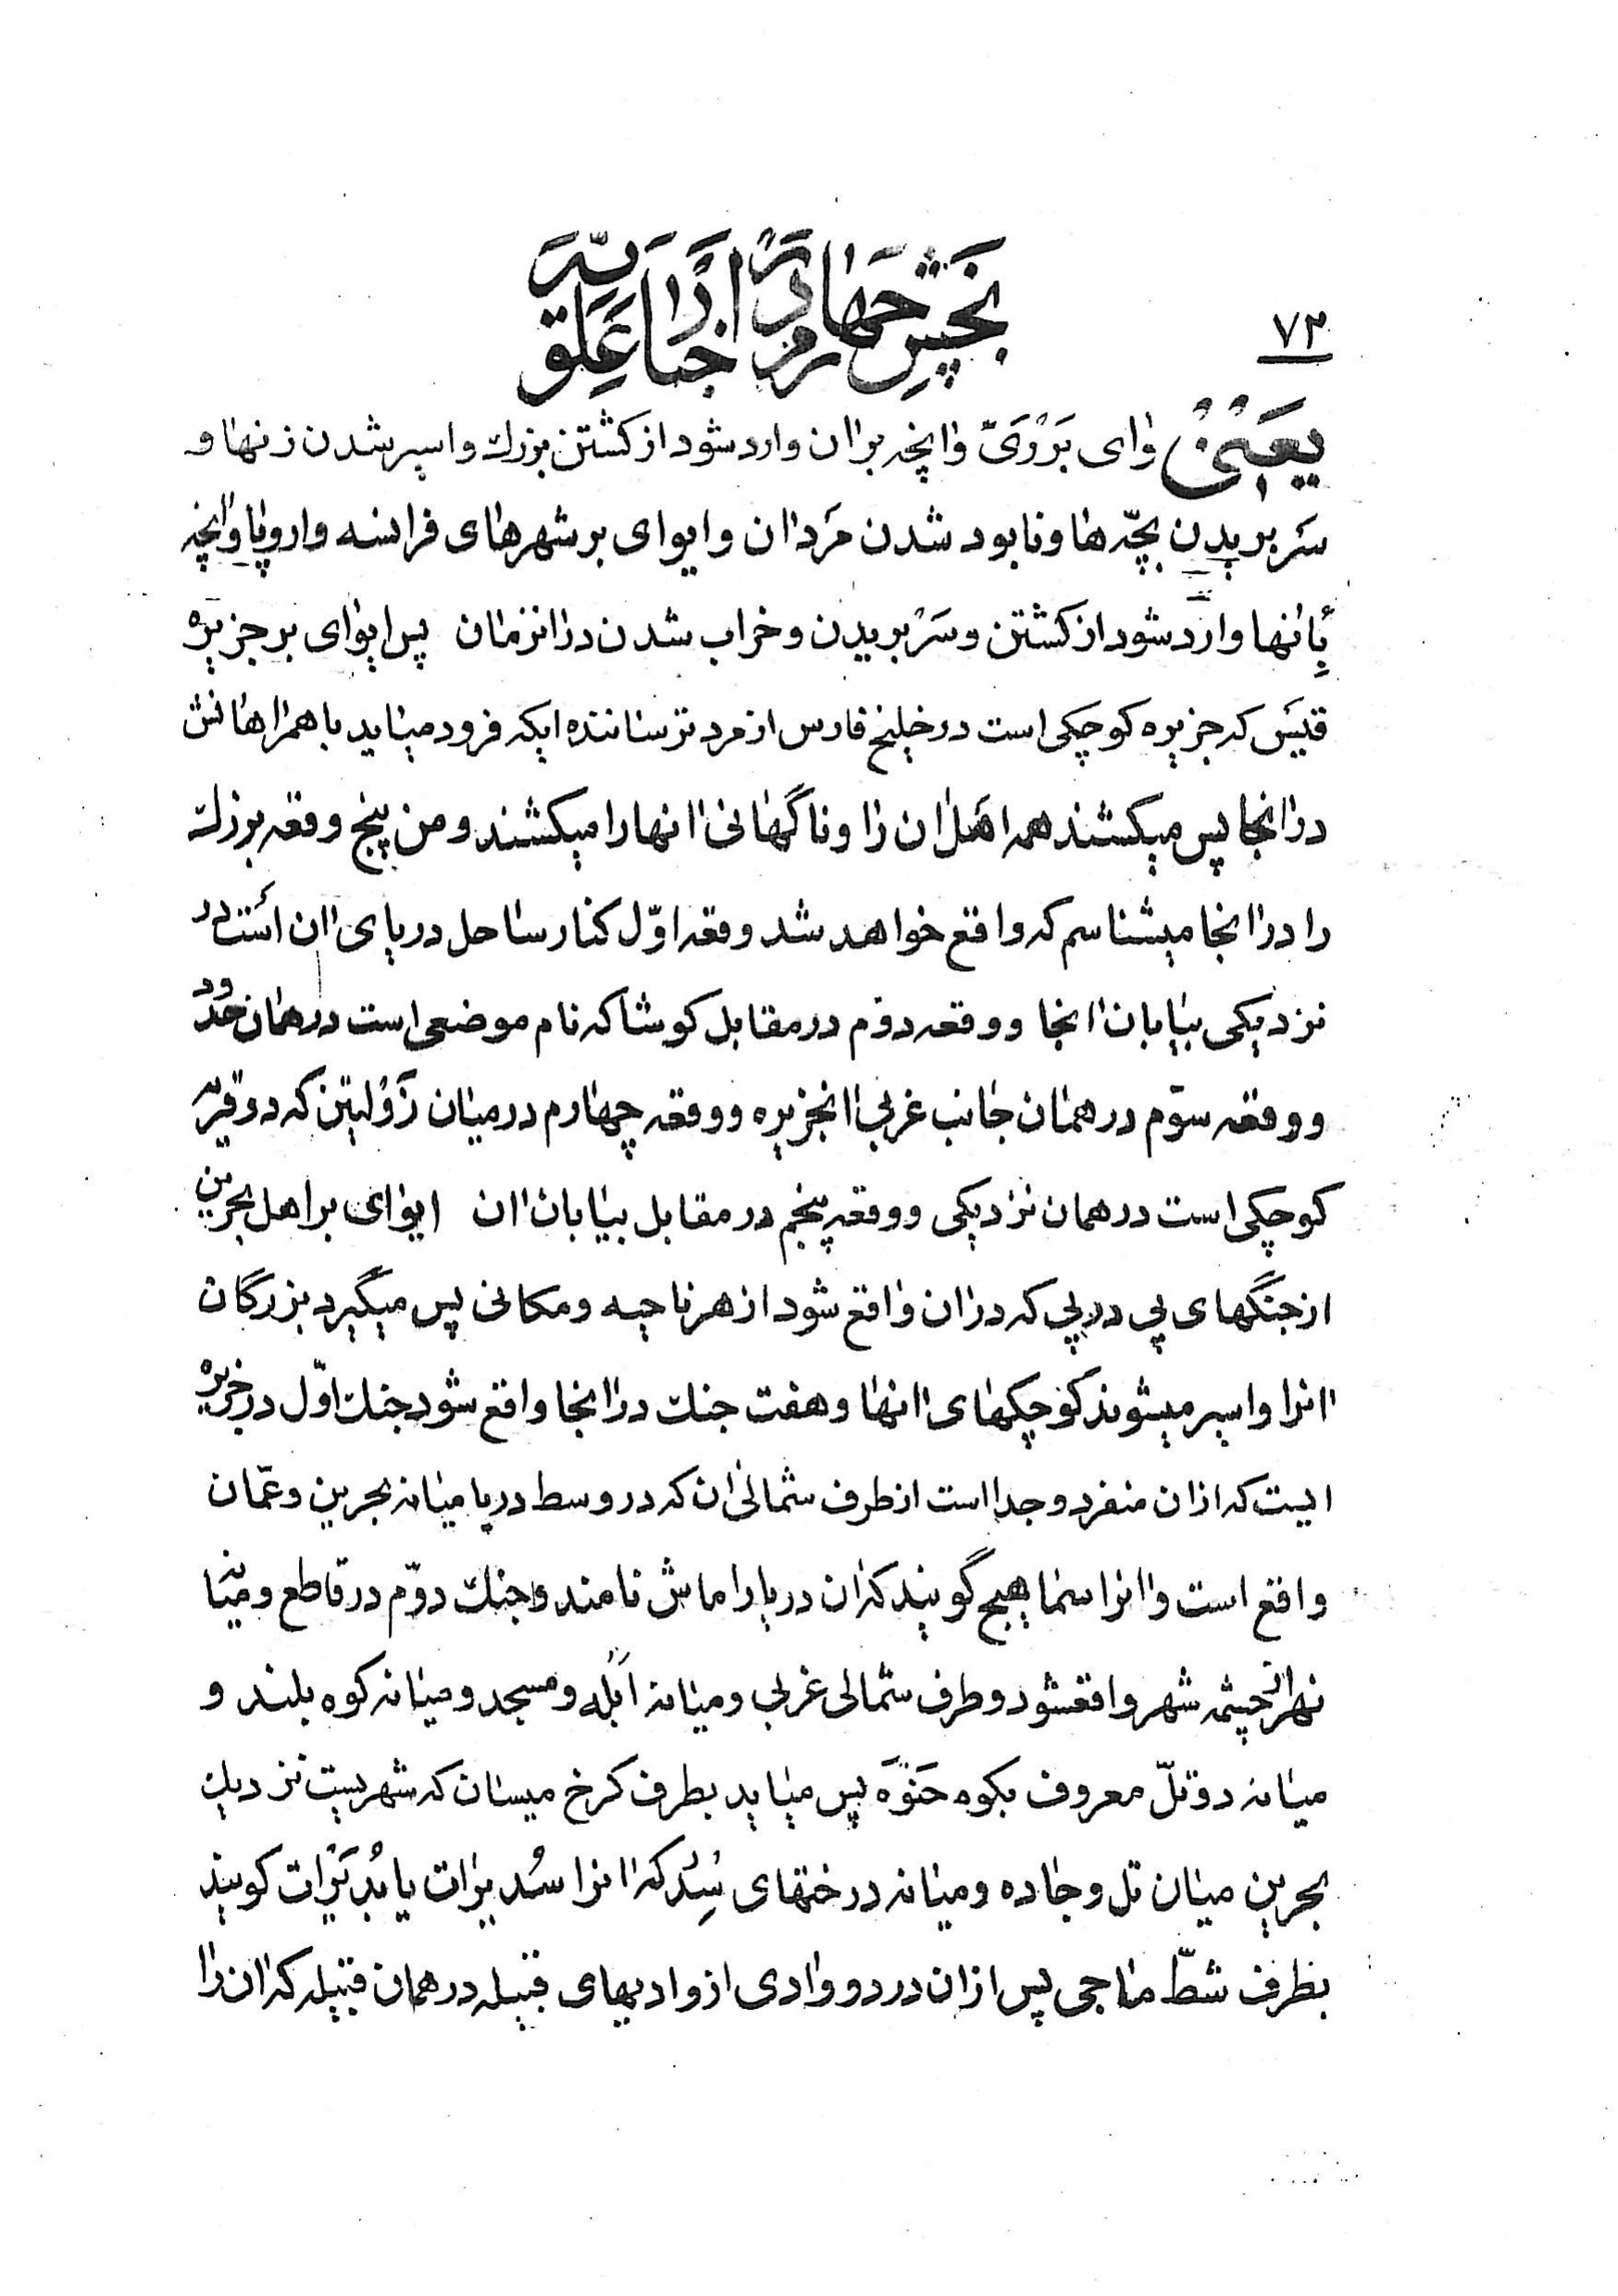 بخش چهارم در اخبار علویه
۷۲
یعنی وای بر ری و انچه بر ان وارد شود از کشتن بزرك و اسیر شدن زنها و
سر بریدن بچّه ها و نابود شدن مردان و ایوای بر شهرهای فرانسه و اروپا و انچه
بانها وارد شود از کشتن و سر بریدن و خراب شدن در انزمان پس ایوای بر جزیره
قیس که جزیره کوچکی است در خلیج فارس از مرد ترساننده ایکه فرود میاید با همراهانش
در انجا پس میکشند همه اهل ان را و ناگهانی انها را میکشند و من پنج وقعه بزرك
را در انجا میشناسم که واقع خواهد شد وقعه اوّل کنار ساحل دریای ان است در
نزدیکی بیابان انجا و وقعه دوّم در مقابل کوشا که نام موضعی است در همان حدود
و وقعه سوّم در همان جانب غربی انجزیره و وقعه چهارم در میان زَوْلَیتَن که دو قریه
کوچکی است در همان نزدیکی و وقعه پنجم در مقابل بیابان ان ایوای بر اهل بحرین
از جنگهای پی در پی که در ان واقع شود از هر ناحیه و مکانی پس میگیرد بزرگان
انرا و اسیر میشوند کوچکهای انها و هفت جنك در انجا واقع شود جنك اوّل در جزیره
ایست که از ان منفرد و جدا است از طرف شمالی ان که در وسط دریا میانه بحرین و عمّان
واقع است و انرا سماهیج گویند که ان دریا را ماش نامند و جنك دوّم در قاطع و میانه
نهر از چشمه شهر واقعشود و طرف شمالی غربی و میانه ابله و مسجد و میانه کوه بلند و
میانه دو تلّ معروف بکوه حَنوَه پس میاید بطرف کرخ میسان که شهریست نزدیك
بحرین میان تل و جاده و میانه درختهای سِدر که انرا سُدیرات یا بُدیرات گویند
بطرف شطّ ماجی پس از ان در دو وادی از وادیهای قبیله در همان قبیله که ان را